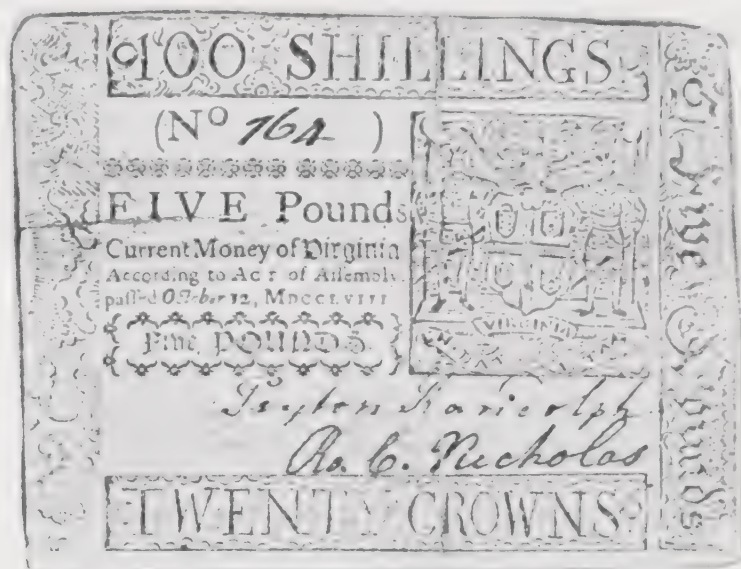 100 SHILLINGS
(No 764 )
FIVE Pounds
Current Money of Virginia
According to ACT of Assembly
passed October 12, MDCCLVIII
Five POUNDS
VIRGINIA
Peyton Randolph
Ro. C. Nicholas
TWENTY CROWNS
Five Pounds